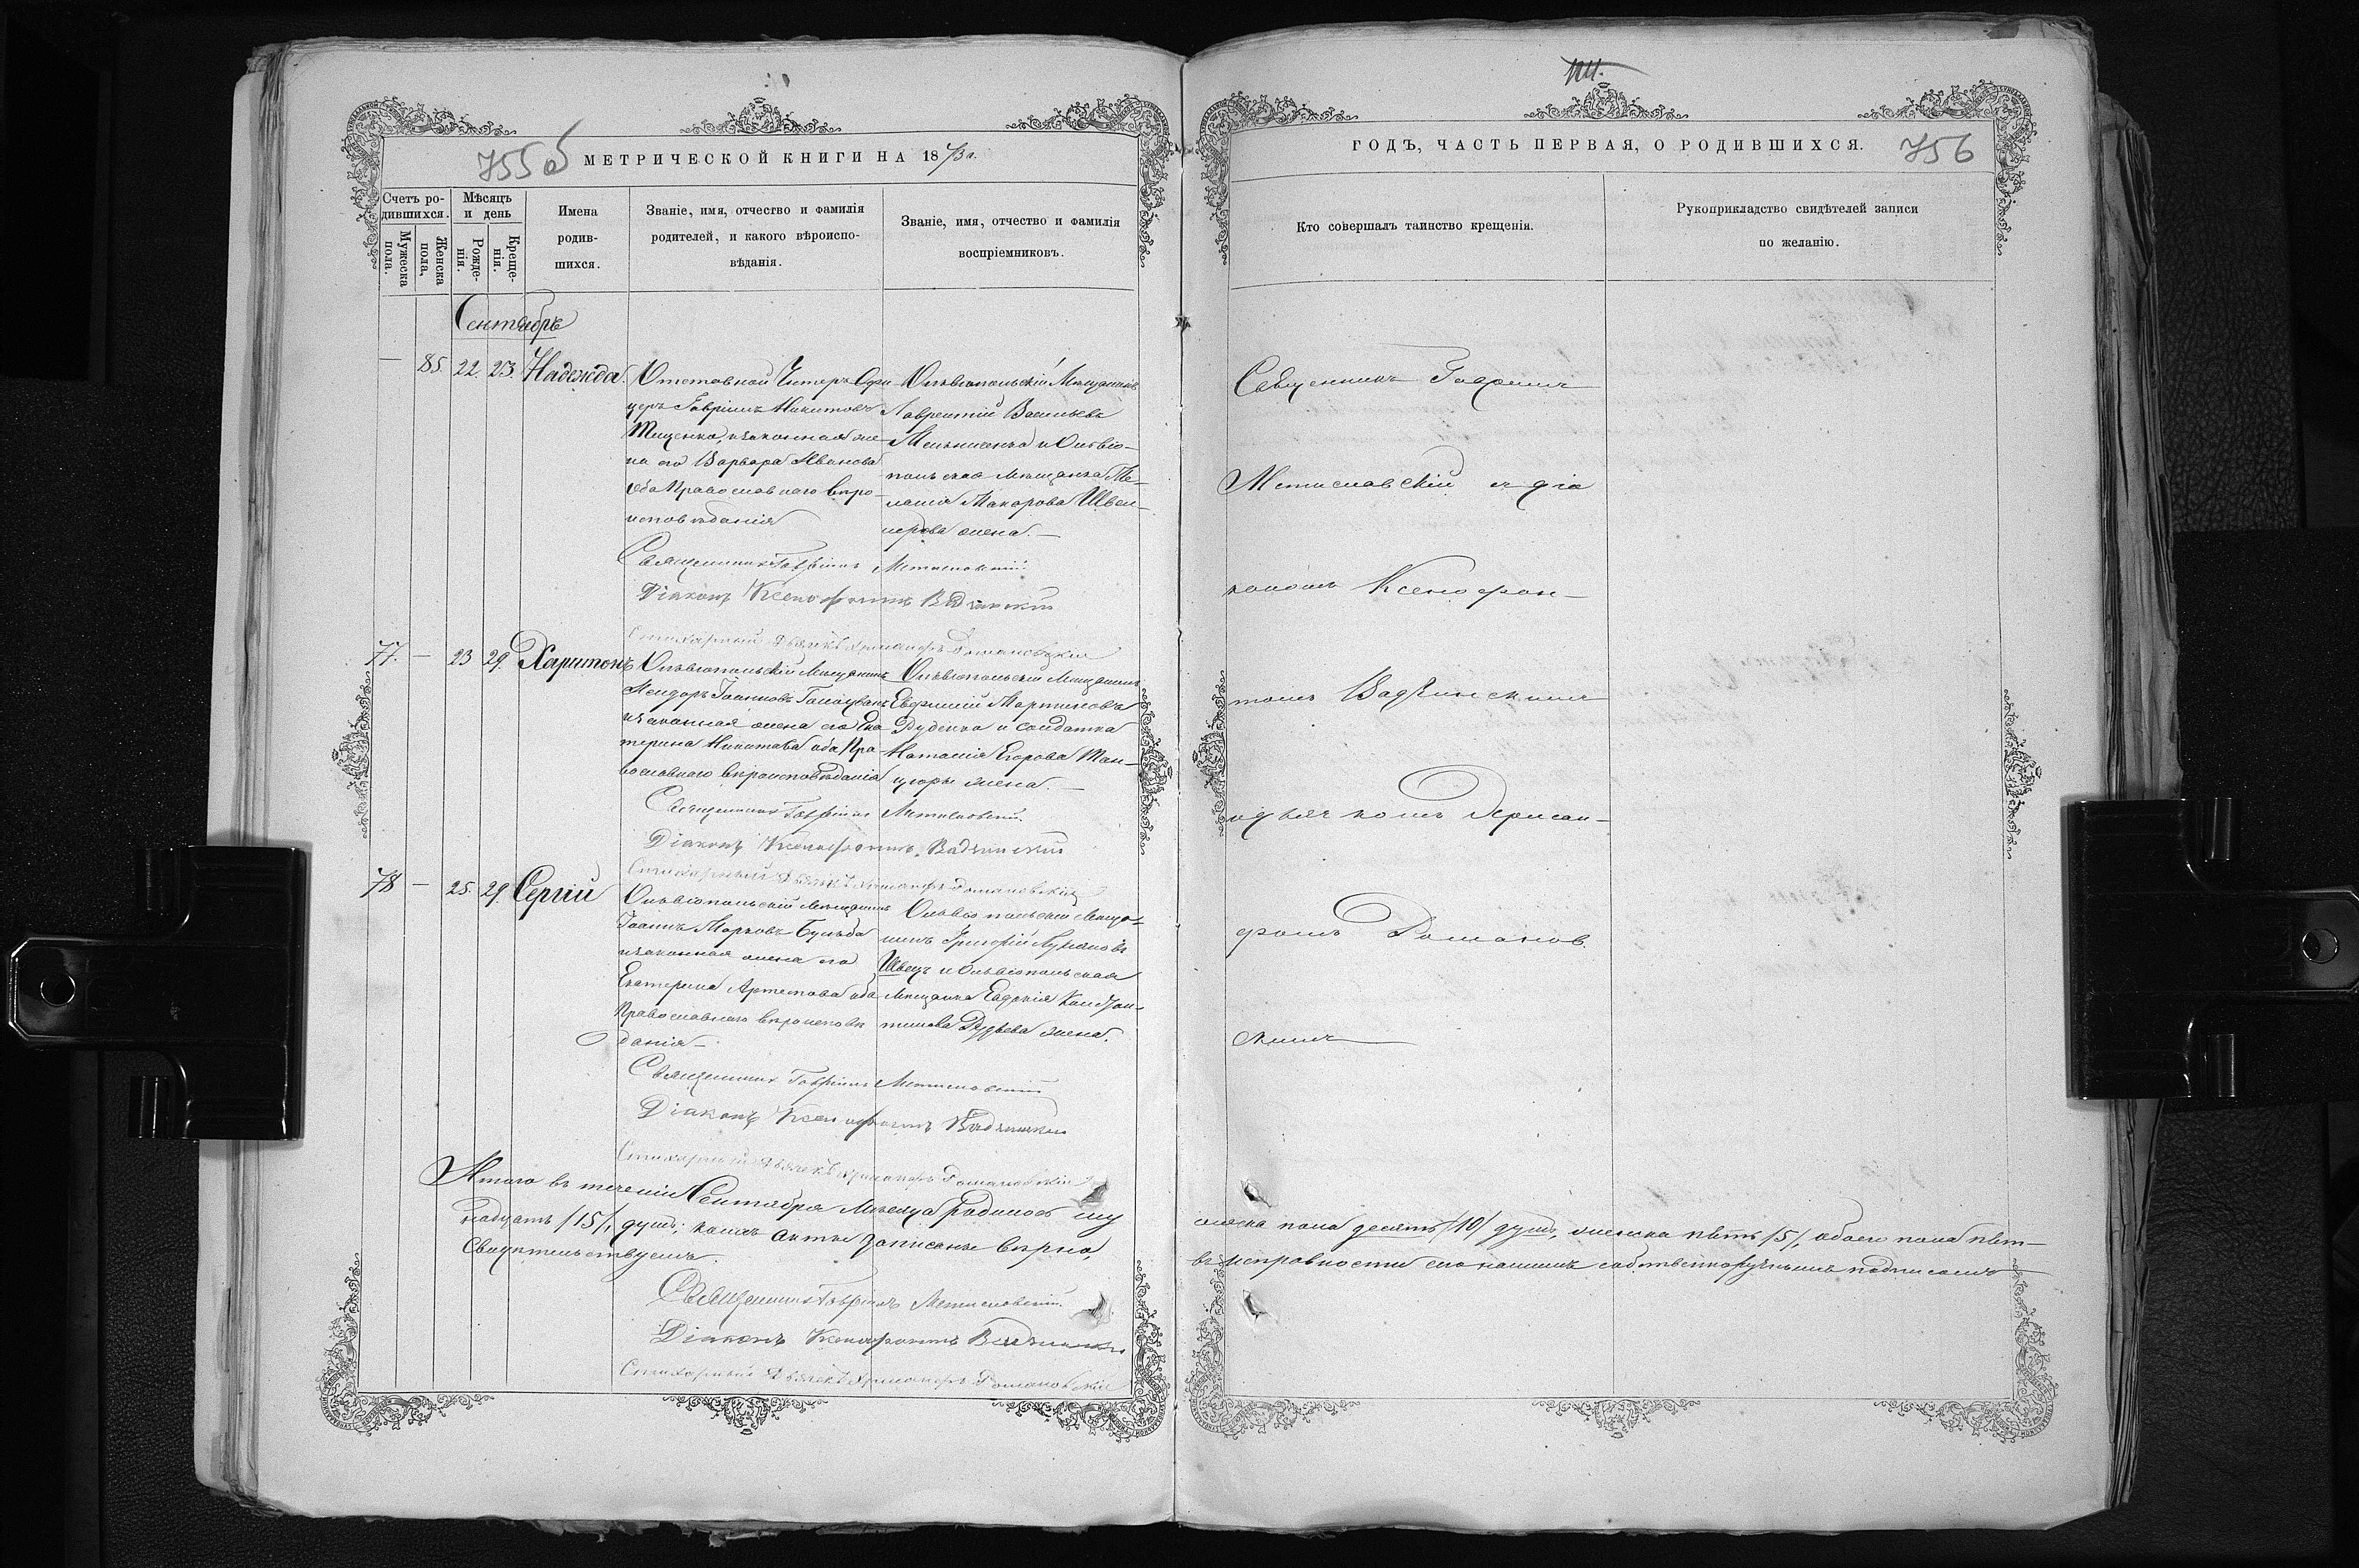 755 об
МЕТРИЧЕСКОЙ КНИГИ НА 1873 г.
Счетъ ро-
дившихся.
Мужеска
пола.
Женска
пола,
Мѣсяцъ
и день
Рожде-
нія.
Креще-
нія.
Имена
родив-
шихся.
Званіе, имя, отчество и фамилія
родителей, и какого вѣроиспо-
вѣданія.
Званіе, имя, отчество и фамилія
воспріемниковъ.
Сентябрь
— 85 22. 23. Надежда.
Отставной Унтеръ Офи
церъ Гавріилъ Никитовъ
Тищенко, изаконная же-
на его Варвара Иванова
оба Православнаго вѣро-
исповѣданія
Ольвіопольскій Мѣщанинъ
Лаврентій Васильевъ
Мельниченко и Ольвіо-
польская мѣщанка Ме-
ланія Макарова
жена.—
Священникъ Гавріилъ Мстиславскій
Діаконъ Ксенофонтъ Вадзинскій
Стихарный Дьячекъ Романовскій
77. — 23 29. Харитонъ
Ольвіопольскій Мѣщанинъ
Исидоръ Іоанновъ
изаконная жена его Ека
терина Никитова оба Пра-
вославнаго вѣроисповѣданія
Ольвіопольскій Мѣщанинъ
Евфимій Мартиновъ
Руденко и солдатка
Наталія Егорова Ман-
жена.—
Священникъ Гавріилъ Мстиславскій
Діаконъ Ксенофонтъ Вадзинскій
Стихарный Дьячекъ Романовскій
78 — 25. 29 Сергій
Ольвіопольскій мѣщанинъ
Іоаннъ Марковъ Бульба
изаконная жена его
Екатерина Артемова оба
Православнаго вѣроисповѣ
данія—
Ольвіопольскій Мѣща-
нинъ Григорій Лукьяновъ
Швецъ и Ольвіопольская
мѣщанка Евдокія Констан-
тинова жена.
Священникъ Гавріилъ Мстиславскій
Діаконъ Ксенофонтъ Вадзинскій
Стихарный Дьячекъ Романовскій
Итого въ теченіи Сентября Мѣсяца родилось му
надцать /15/, душъ; какъ акты записаны вѣрно,
Свидѣтельствуемъ.
Священникъ Гавріилъ Мстиславскій
Діаконъ Ксенофонтъ Вадзинскій
Стихарный Дьячекъ Романовскій
ГОДЪ, ЧАСТЬ ПЕРВАЯ, О РОДИВШИХСЯ.
756
Кто совершалъ таинство крещенія.
Рукоприкладство свидѣтелей записи
по желанію.
Священникъ Гавріилъ
Мстиславскій съ діа
кономъ Ксенофон-
томъ Вадзинскимъ
идьячкомъ Хрисан-
фомъ Романов.
скимъ
жеска пола десять /10/ душъ, женска пять /5/, обоего пола пят-
въ исправности его нашимъ собственноручнымъ подписомъ